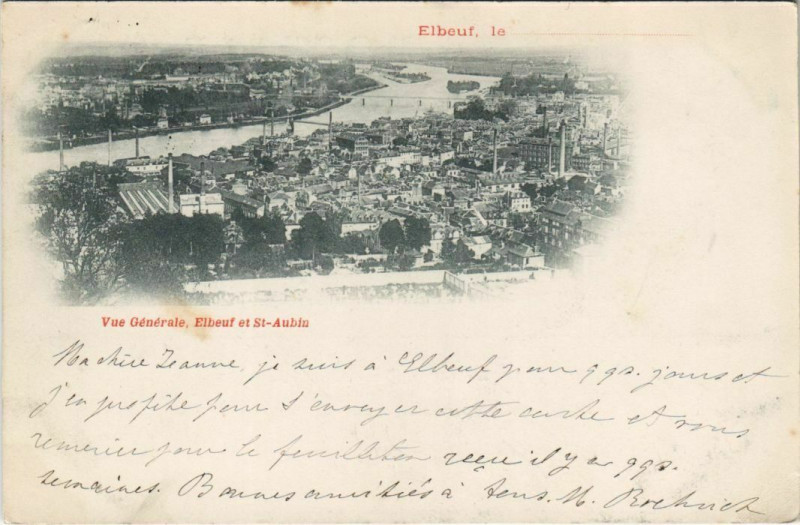 Elbeuf, le
Vue Générale, Elbeuf et St-Aubin
Ma chère Jeanne, je suis à Elbeuf pour qqs. jours et
j'en profite pour t'envoyer cette carte et vous
remercier pour le feuilleton reçu il y a qqs.
semaines. Bonnes amitiés à tous. M.